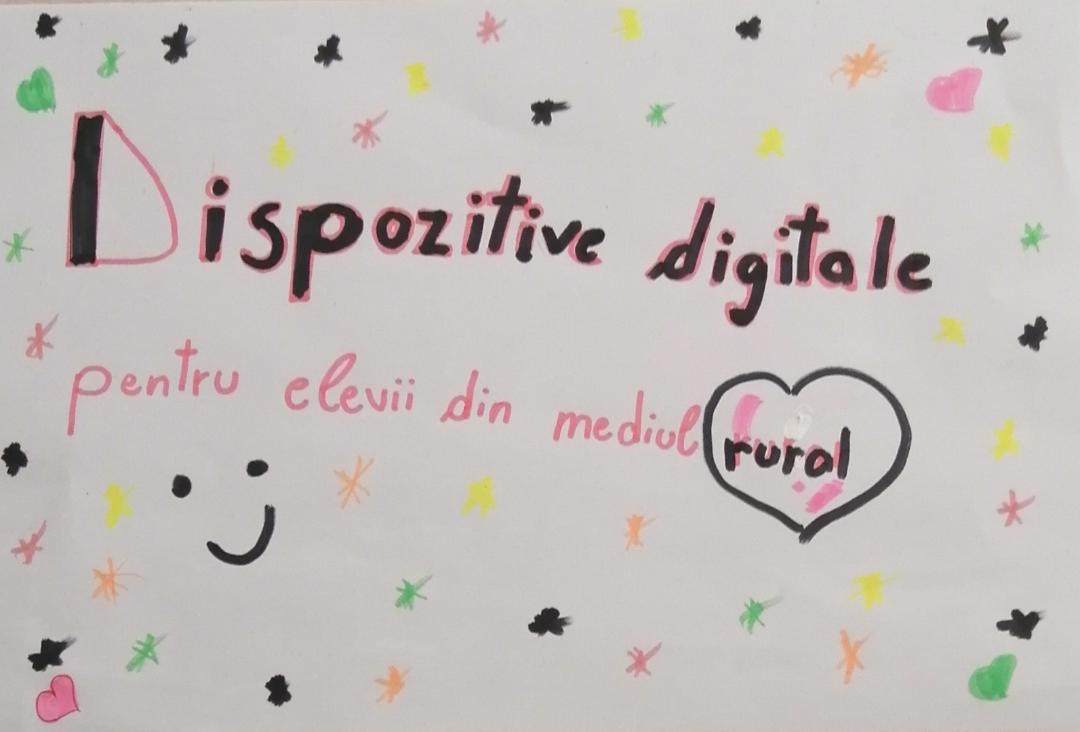 Dispozitive digitale
pentru elevii din mediul rural